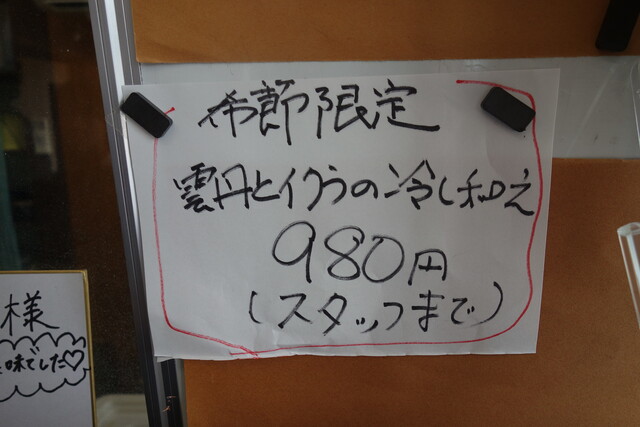 希節限定
雲丹とイクラの冷し和え
980円
(スタッフまで)
様
味でした♡